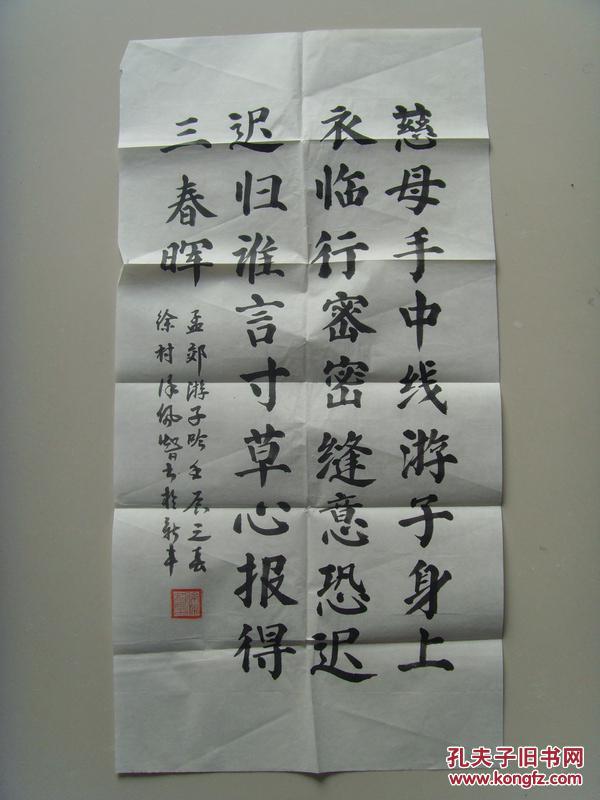 慈母手中线游子身上
衣临行密密缝意恐迟
迟归谁言寸草心报得
三春晖
孟郊游子吟壬辰之春
徐村 佩智书于新丰
孔夫子旧书网
www.kongfz.com